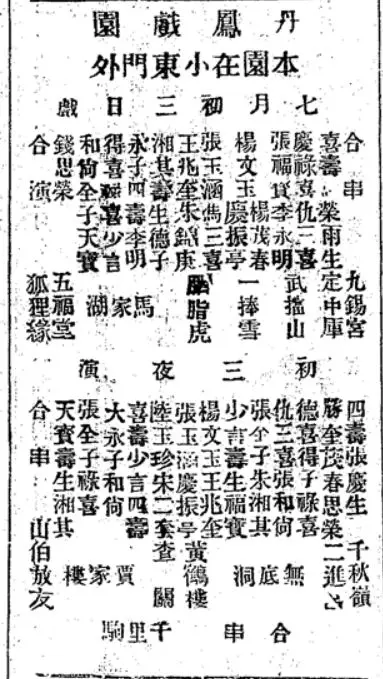 丹鳳戲園
本園在小東門外
七月初三日戲
合串 九錫宮
喜壽 榮雨生 定中原
慶祿喜仇三喜
張福寶李永明 武擋山
楊茂春
楊文玉慶振亭 一捧雪
張玉涵喬三喜
王兆奎朱錦庚 胭脂虎
湘其壽生德子
永子四壽李明 馬家湖
得喜祿喜少言
和尙全子天寶
錢思榮 五福堂
合演 狐狸緣
初三夜演
四壽張慶生 千秋嶺
勝奎茂春思榮 二進宮
德喜得子祿喜
仇三喜張和尙 無底洞
張全子朱湘其
少言壽生福寶
楊文玉王兆奎
張玉涵慶振亭 黃鶴樓
陸玉珍宋二奎 查關
喜壽少言四壽
大永子和尙 賈家樓
張全子祿喜
天寶壽生湘其
合串 山伯放友
合串 千里駒